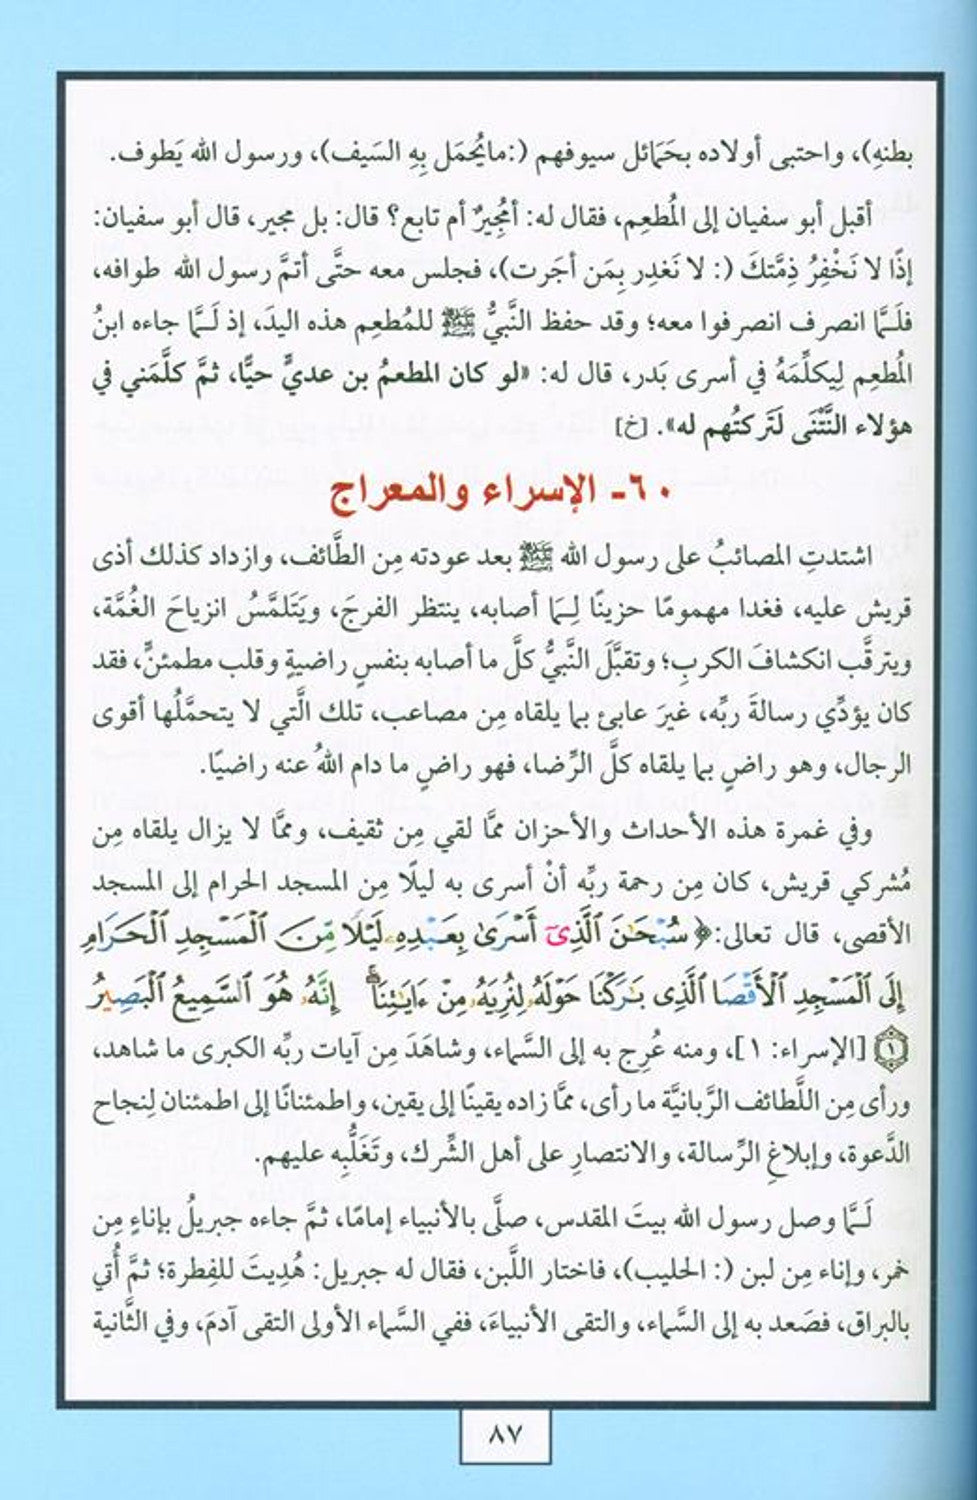 بطنهِ)، واحتبى أولاده بحَمَائل سيوفهم (:مايُحمَل بِهِ السَيف)، ورسول الله يَطوف.
أقبل أبو سفيان إلى المُطعِم، فقال له: أمُجِيرٌ أم تابع؟ قال: بل مجير، قال أبو سفيان:
إذًا لا نَخْفِرُ ذِمَّتكَ (: لا نَغدِر بِمَن أجَرت)، فجلس معه حتَّى أتمَّ رسول الله طوافه،
فلَـمَّا انصرف انصرفوا معه؛ وقد حفظ النَّبيُّ ﷺ للمُطعِم هذه اليدَ، إذ لَـمَّا جاءه ابنُ
المُطعِم لِيكلِّمَهُ في أسرى بَدر، قال له: «لو كان المطعمُ بن عديٍّ حيًّا، ثمَّ كلَّمَني في
هؤلاء النَّتْنَى لَتَركتُهم له». [خ]
٦٠- الإسراء والمعراج
اشتدتِ المصائبُ على رسول الله ﷺ بعد عودته مِن الطَّائف، وازداد كذلك أذى
قريش عليه، فغدا مهمومًا حزينًا لِـمَا أصابه، ينتظر الفرجَ، ويَتَلمَّسُ انزياحَ الغُمَّة،
ويترقَّب انكشافَ الكربِ؛ وتقبَّلَ النَّبيُّ كلَّ ما أصابه بنفسٍ راضيةٍ وقلب مطمئنٍّ، فقد
كان يؤدِّي رسالةَ ربِّه، غيرَ عابئ بما يلقاه مِن مصاعب، تلك الَّتي لا يتحمَّلُها أقوى
الرجال، وهو راضٍ بما يلقاه كلَّ الرِّضا، فهو راضٍ ما دام اللهُ عنه راضيًا.
وفي غمرة هذه الأحداث والأحزان ممَّا لقي مِن ثقيف، وممَّا لا يزال يلقاه مِن
مُشركي قريش، كان مِن رحمة ربِّه أنْ أسرى به ليلًا مِن المسجد الحرام إلى المسجد
الأقصى، قال تعالى: ﴿سُبْحَٰنَ ٱلَّذِىٓ أَسْرَىٰ بِعَبْدِهِۦ لَيْلًا مِّنَ ٱلْمَسْجِدِ ٱلْحَرَامِ
إِلَى ٱلْمَسْجِدِ ٱلْأَقْصَا ٱلَّذِى بَٰرَكْنَا حَوْلَهُۥ لِنُرِيَهُۥ مِنْ ءَايَٰتِنَآ ۚ إِنَّهُۥ هُوَ ٱلسَّمِيعُ ٱلْبَصِيرُ
۝١ [الإسراء: ١]، ومنه عُرِج به إلى السَّماء، وشاهَدَ مِن آيات ربِّه الكبرى ما شاهد،
ورأى مِن اللَّطائف الرَّبانيَّة ما رأى، ممَّا زاده يقينًا إلى يقين، واطمئنانًا إلى اطمئنان لِنجاح
الدَّعوة، وإبلاغِ الرِّسالة، والانتصارِ على أهل الشِّرك، وتَغَلُّبِه عليهم.
لَـمَّا وصل رسول الله بيتَ المقدس، صلَّى بالأنبياء إمامًا، ثمَّ جاءه جبريلُ بإناءٍ مِن
خمر، وإناء مِن لبن (: الحليب)، فاختار اللَّبن، فقال له جبريل: هُدِيتَ للفِطرة؛ ثمَّ أُتي
بالبراق، فصَعد به إلى السَّماء، والتقى الأنبياءَ، ففي السَّماء الأولى التقى آدمَ، وفي الثَّانية
٨٧